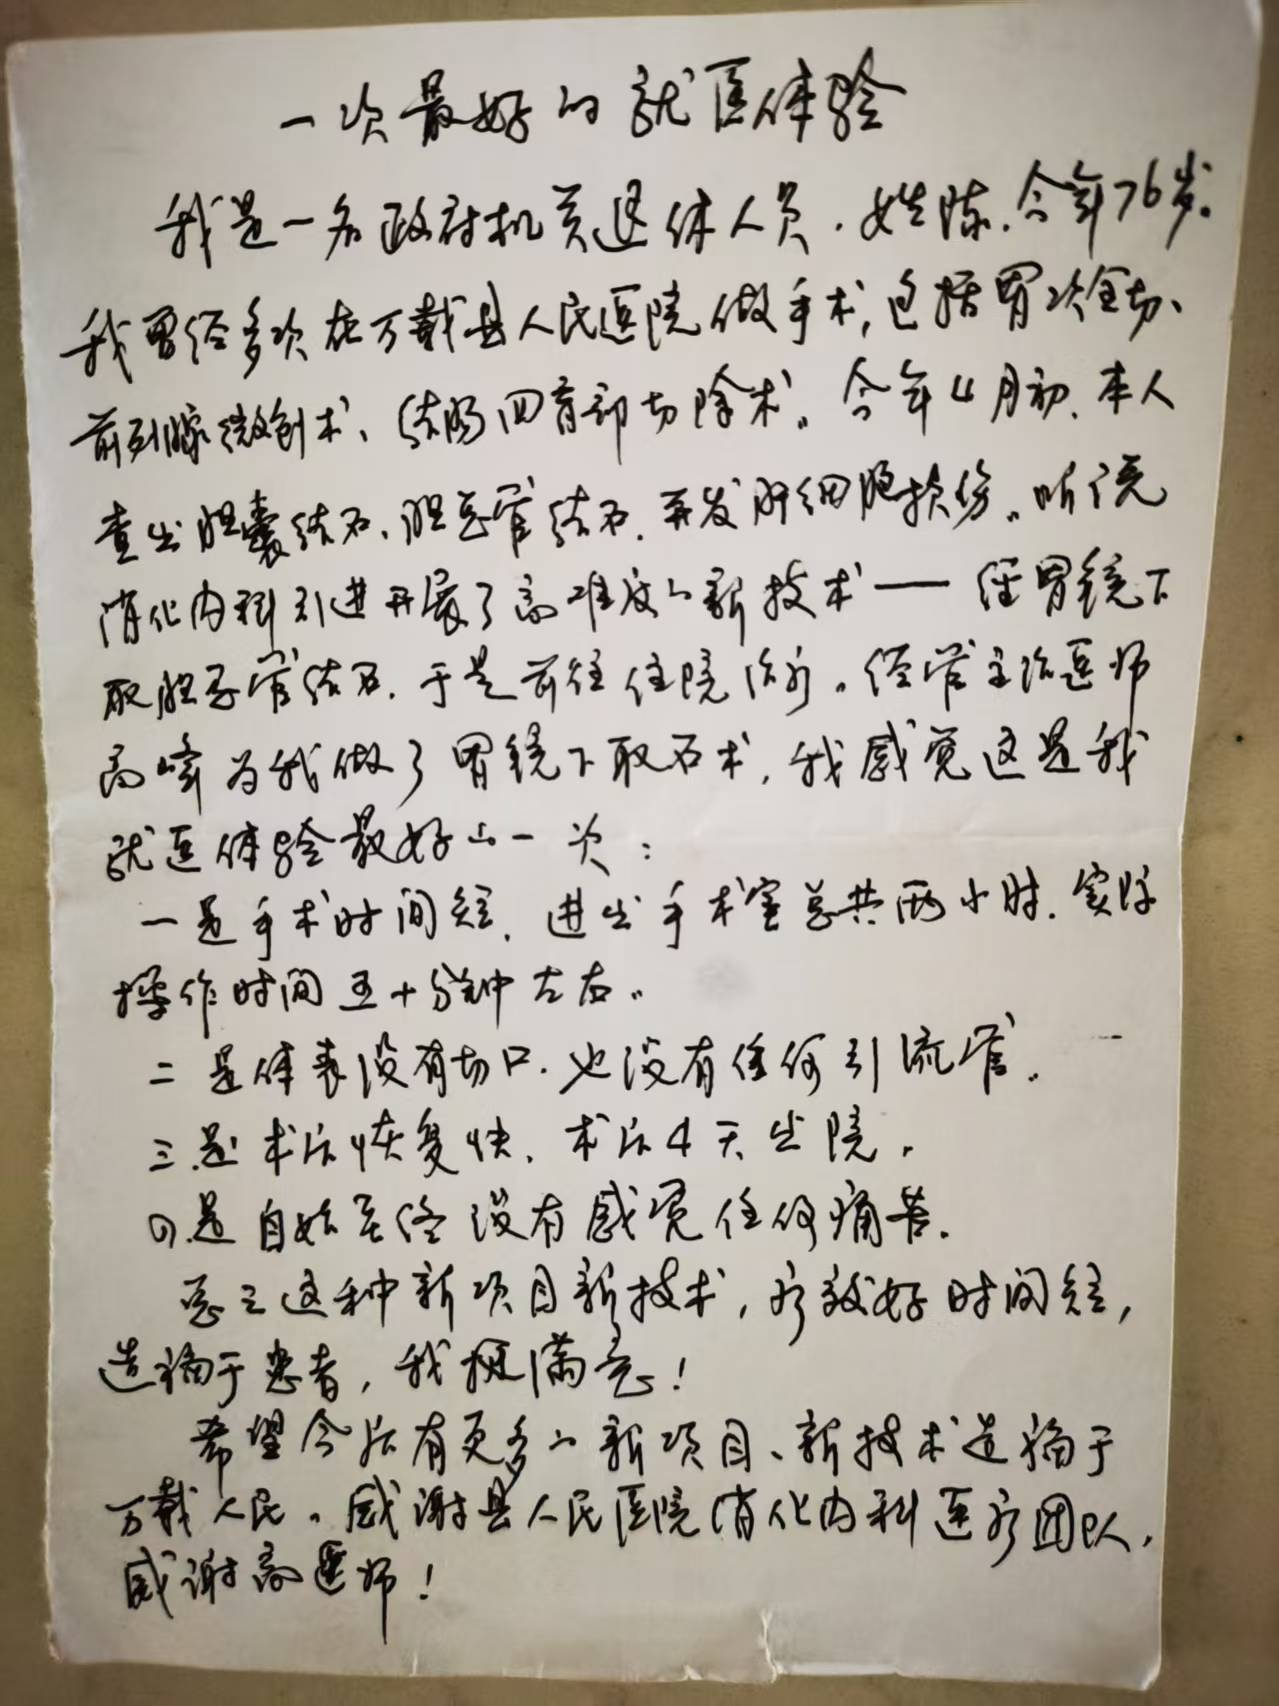 一次最好的就医体验
我是一名政府机关退休人员，姓陈，今年76岁。
我曾经多次在万载县人民医院做手术，包括胃次全切、
前列腺微创术、结肠四育部切除术。今年4月初，本人
查出胆囊结石、胆总管结石，并发肝细胞损伤。听说
消化内科引进开展了高难度的新技术——经胃镜下
取胆总管结石，于是前往住院治疗。经管主治医师
高峰为我做了胃镜下取石术，我感觉这是我
就医体验最好的一次：
一是手术时间短，进出手术室总共两小时，实际
操作时间五十分钟左右。
二是体表没有切口，也没有任何引流管。
三是术后恢复快，术后4天出院。
四是自始至终没有感觉任何痛苦。
总之这种新项目新技术，疗效好时间短，
造福于患者，我挺满意！
希望今后有更多的新项目、新技术造福于
万载人民。感谢县人民医院消化内科医疗团队，
感谢高医师！